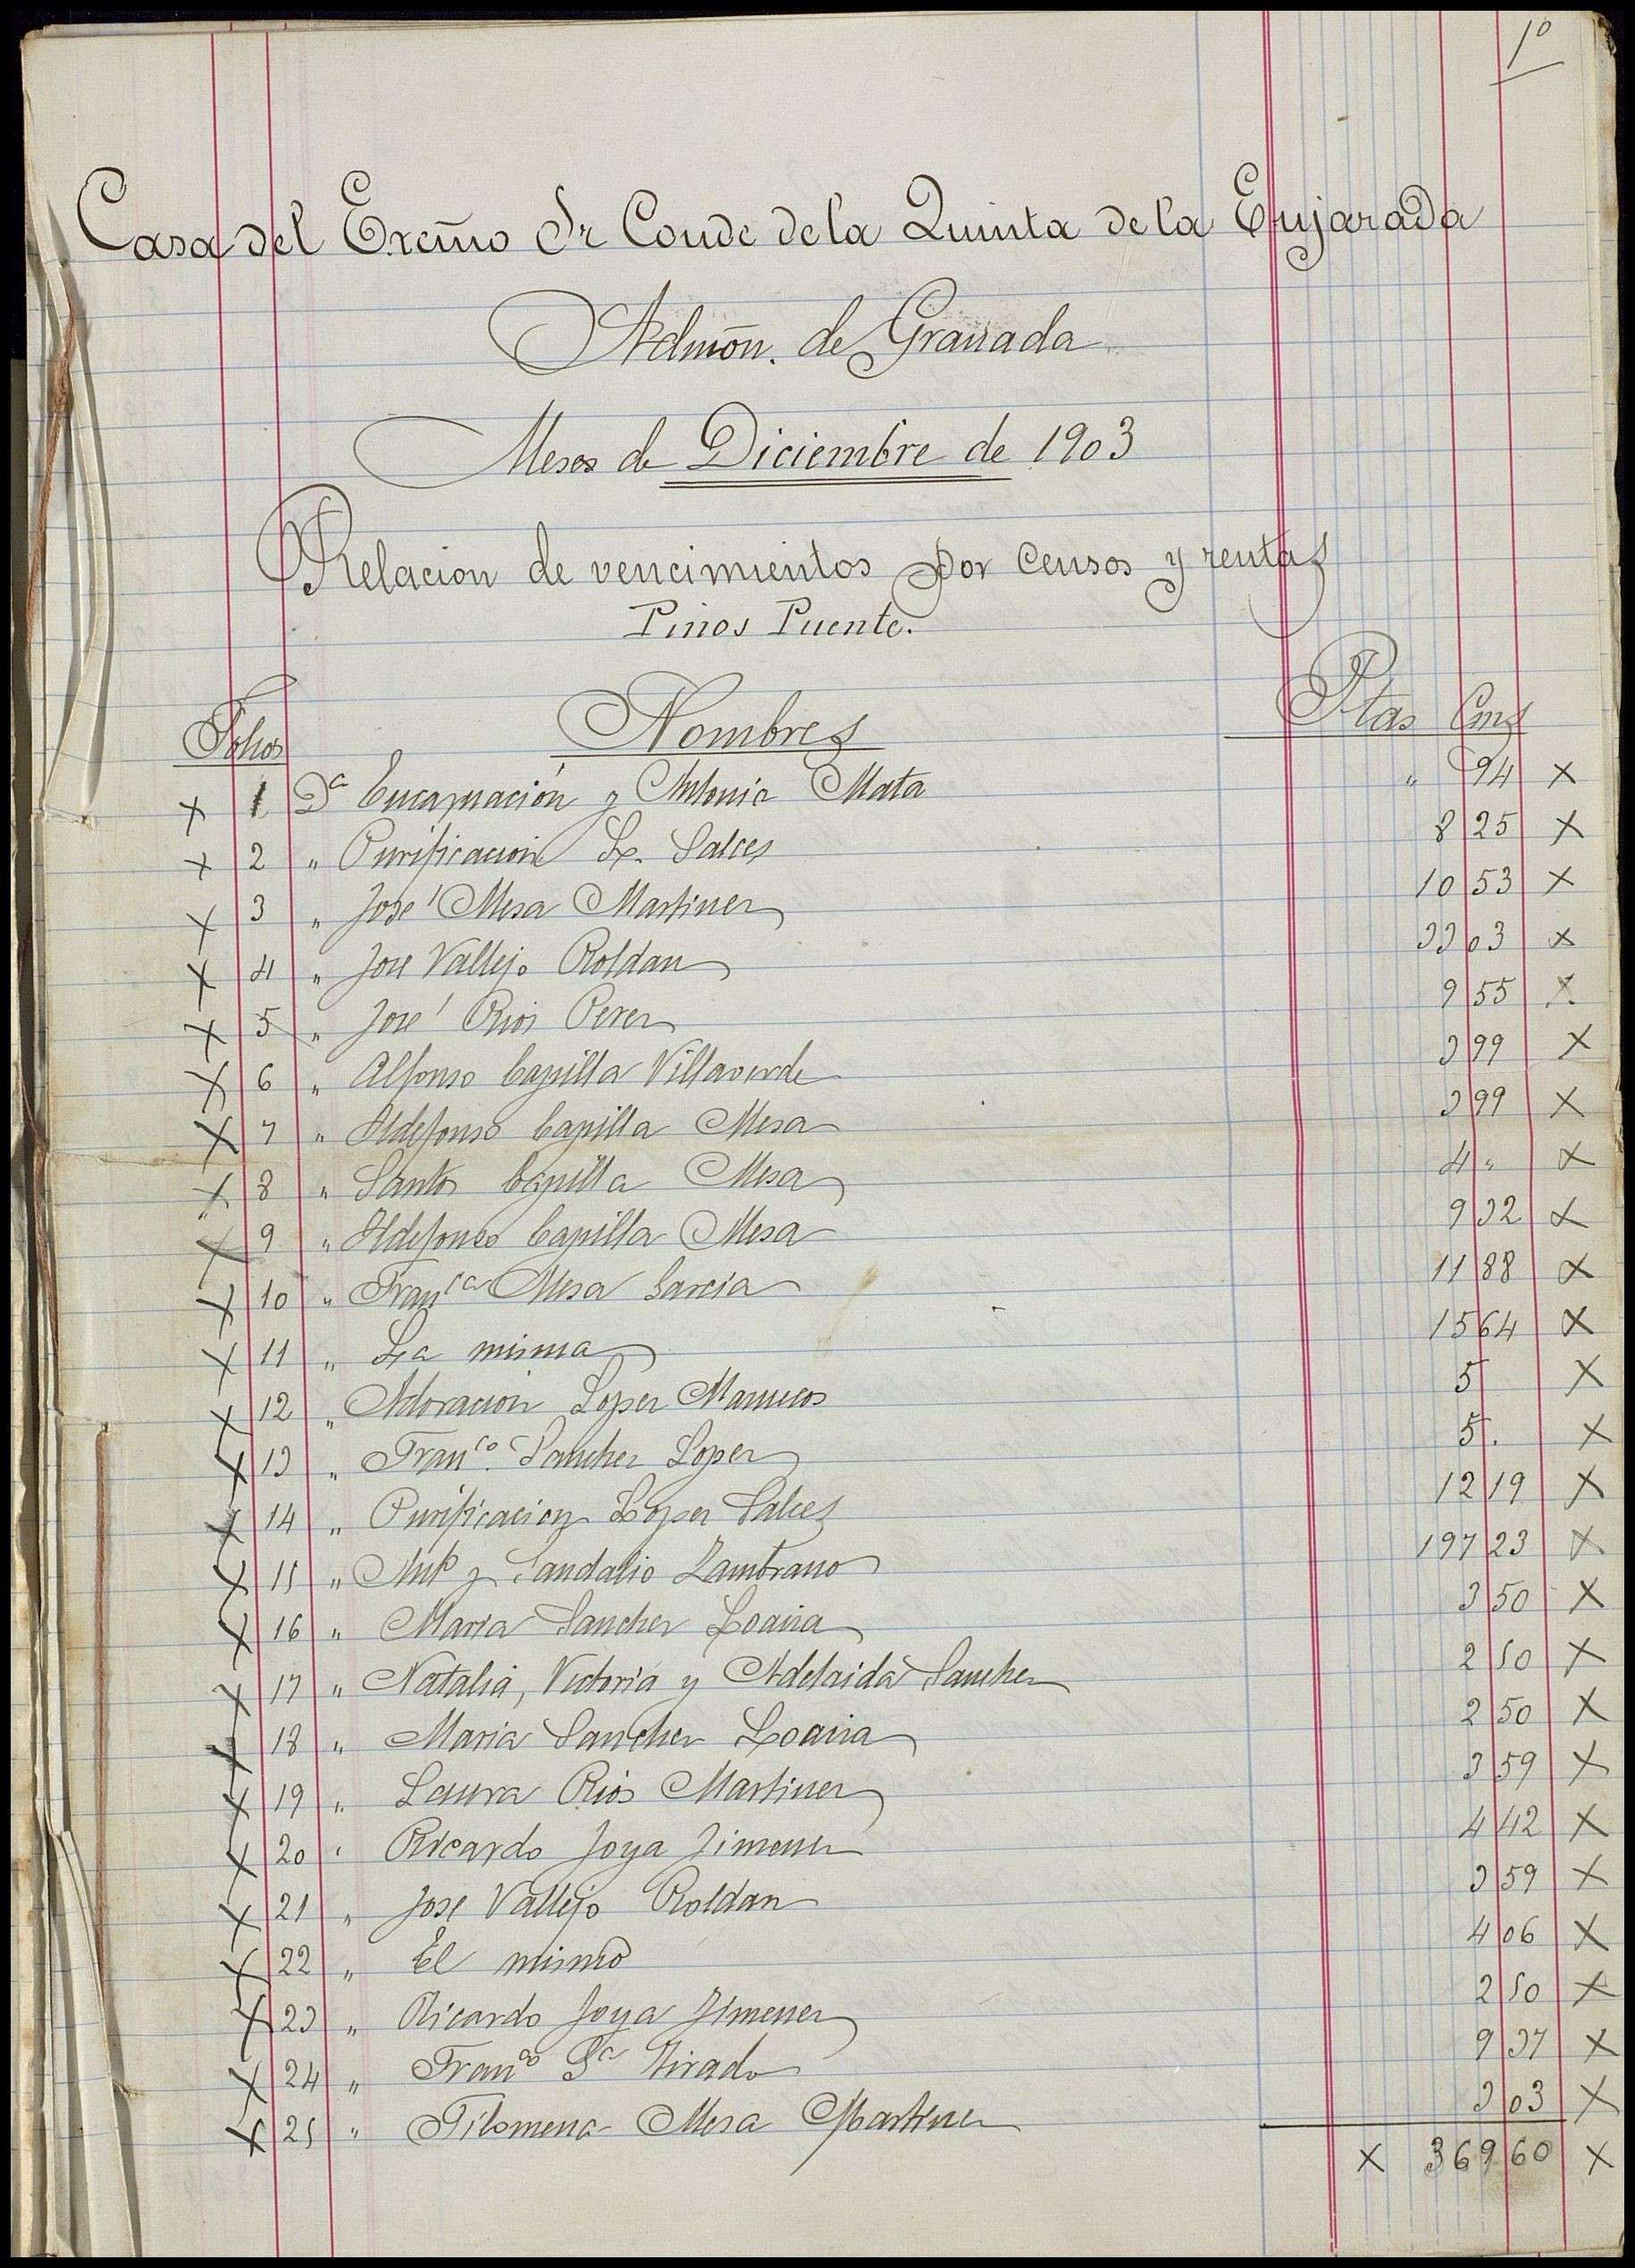 1º
Casa del Excmo Sr Conde de la Quinta de la Enjarada
Admón. de Granada
Meses de Diciembre de 1903
Relacion de vencimientos por Censos y rentas
Pinos Puente.
Folios Nombres Ptas Cms
x 1 Dª Encarnación y Antonia Mata " 94 x
x 2 " Purificacion L. Salces 8 25 x
x 3 " José Mesa Martinez 10 53 x
x 4 " Jose Vallejo Roldan 33 03 x
x 5 " José Rios Perez 9 55 x
x 6 " Alfonso Capilla Villaverde 3 99 x
x 7 " Ildefonso Capilla Mesa 3 99 x
x 8 " Santos Capilla Mesa 4 " x
x 9 " Ildefonso Capilla Mesa 9 32 x
x 10 " Franca Mesa Garcia 11 88 x
x 11 " La misma 15 64 x
x 12 " Adoracion Lopez Marruecos 5 x
x 13 " Franco. Sanchez Lopez 5 . x
x 14 " Purificacion Lopez Salces 12 19 x
x 15 " Antº y Sandalio Zambrano 197 23 x
x 16 " Maria Sanchez Loaira 3 50 x
x 17 " Natalia, Victoria y Adelaida Sanchez 2 50 x
x 18 " Maria Sanchez Loaira 2 50 x
x 19 " Laura Rios Martinez 3 59 x
x 20 " Ricardo Joya Jimenez 4 42 x
x 21 " Jose Vallejo Roldan 3 59 x
x 22 " El mismo 4 06 x
x 23 " Ricardo Joya Jimenez 2 50 x
x 24 " Franco Gª Tirado 9 37 x
x 25 " Filomena Mesa Martinez 3 03 x
x 369 60 x